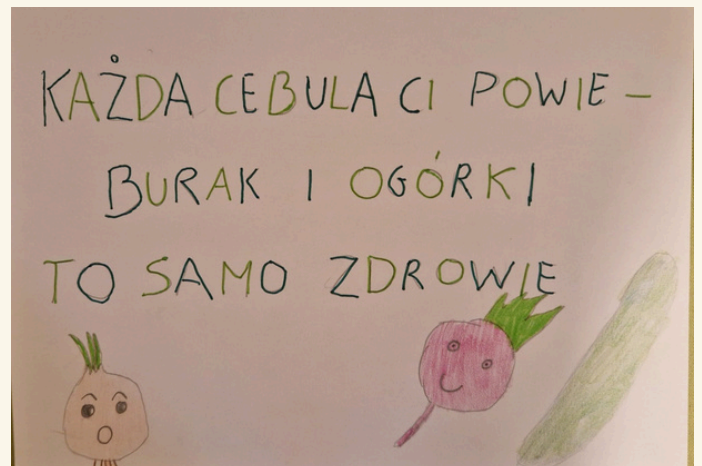 KAŻDA CEBULA CI POWIE –
BURAK I OGÓRKI
TO SAMO ZDROWIE